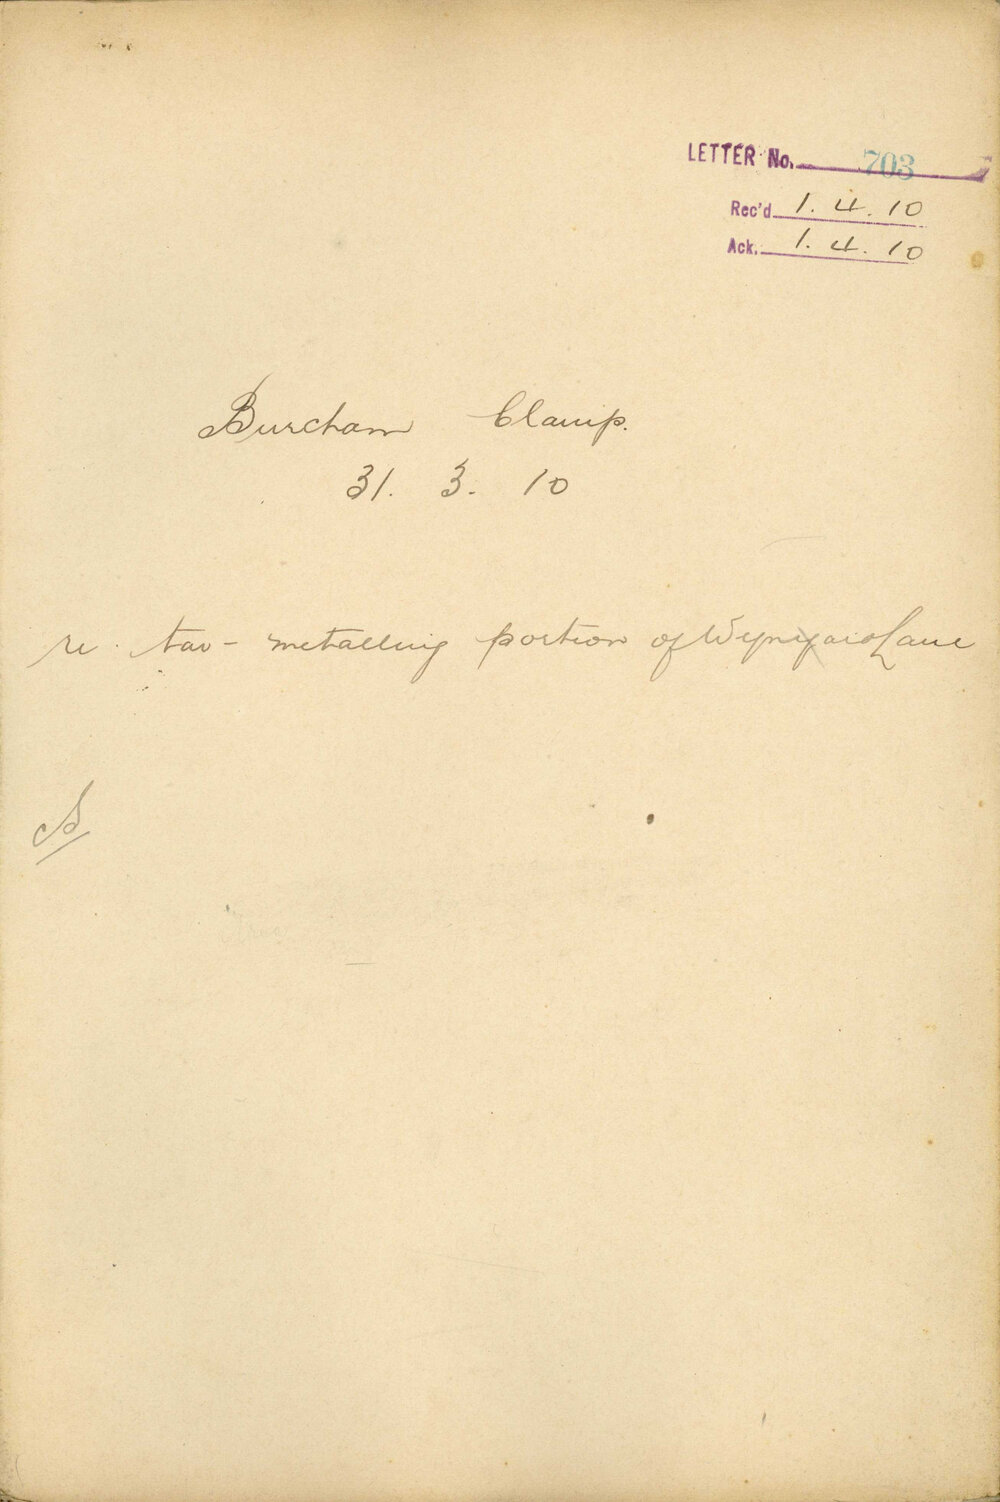 LETTER No. 703
Rec'd 1. 4. 10
Ack. 1. 4. 10
Burcham Clamp.
31. 3. 10
re. tar-metalling portion of Wynyard Lane